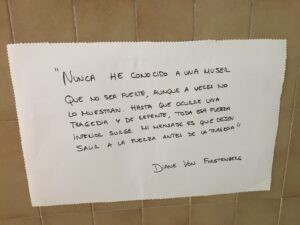 "NUNCA HE CONOCIDO A UNA MUJER
QUE NO SEA FUERTE, AUNQUE A VECES NO
LO MUESTRAN. HASTA QUE OCURRE UNA
TRAGEDIA Y DE REPENTE, TODA ESA FUERZA
INTERIOR SURGE. MI MENSAJE ES QUE DEJEN
SALIR A LA FUERZA ANTES DE LA TRAGEDIA"
DIANE VON FURSTENBERG